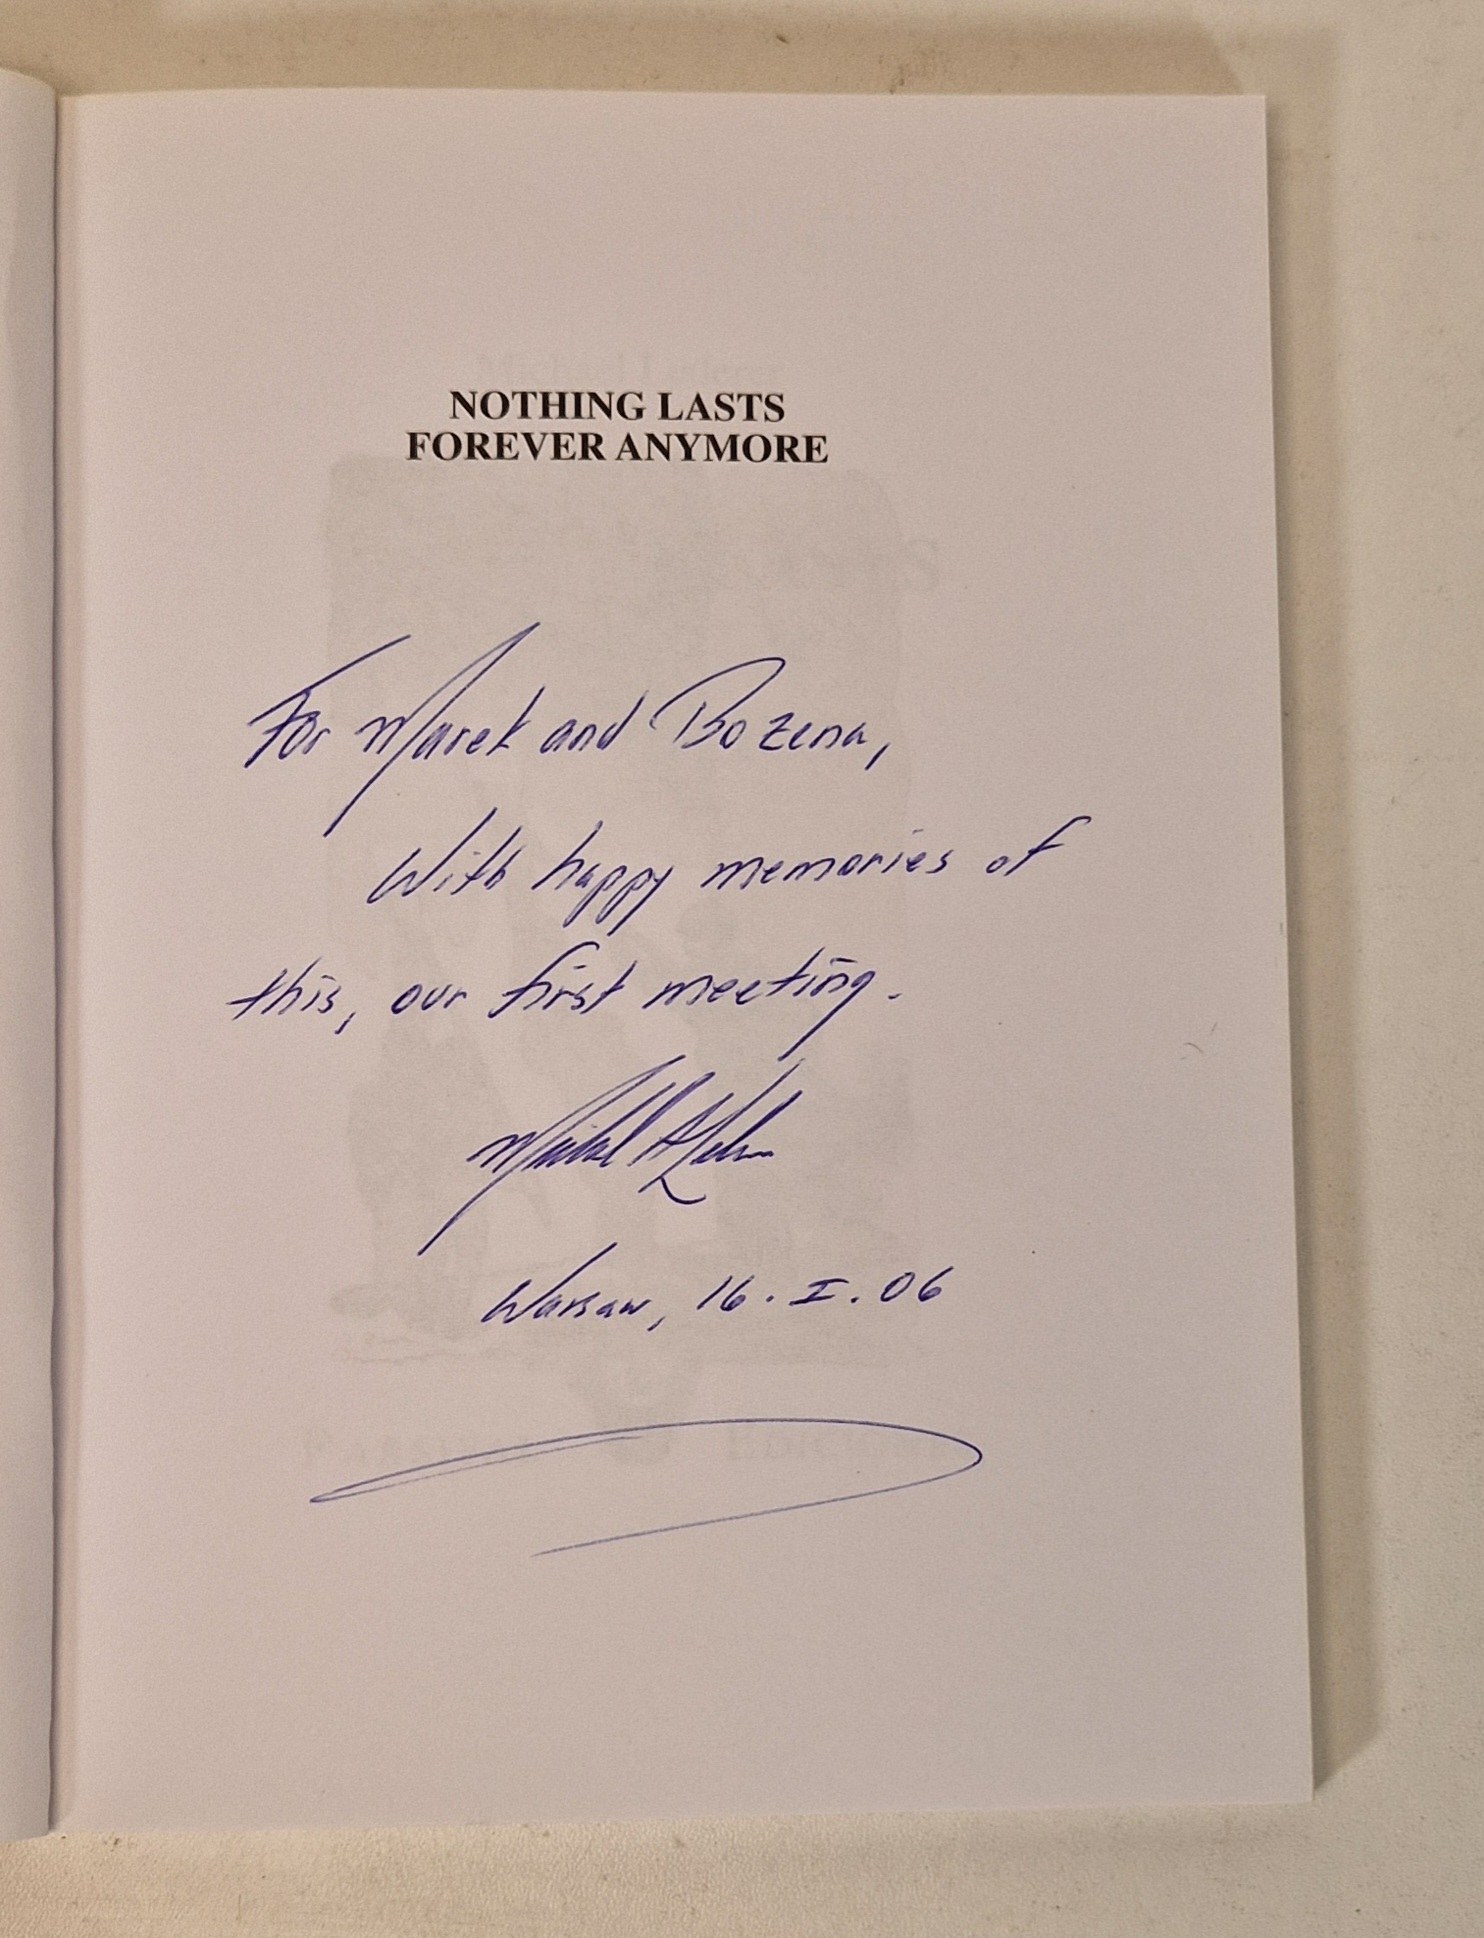 NOTHING LASTS
FOREVER ANYMORE
For Marek and Bozena,
With happy memories of
this, our first meeting.
Warsaw, 16.I.06